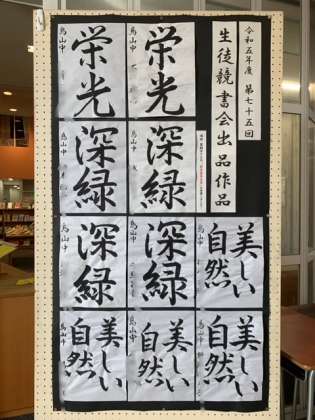 令和五年度 第七十五回
生徒競書会出品作品
栄光
烏山中
栄光
烏山中
深緑
烏山中
深緑
烏山中
深緑
烏山中
深緑
烏山中
美しい
自然
烏山中
美しい
自然
烏山中
美しい
自然
烏山中
美しい
自然
烏山中